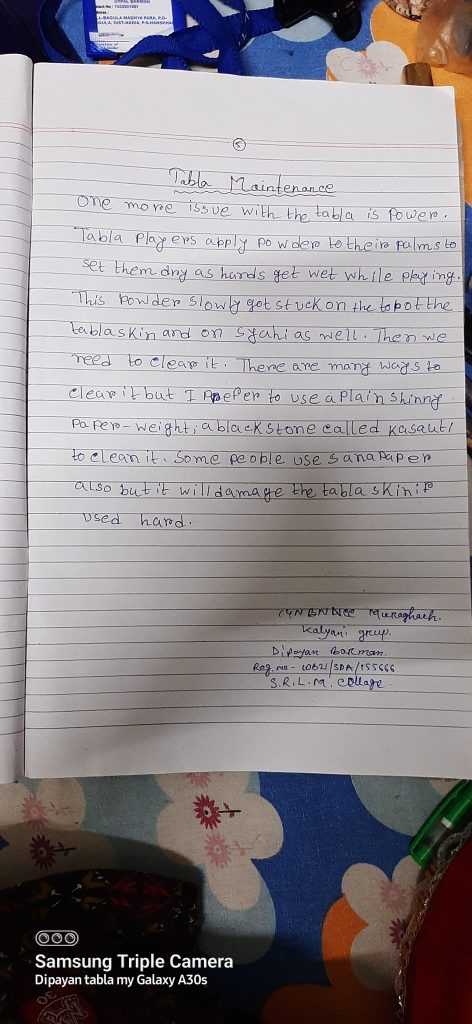 UTPAL BARMAN
7432901081
BAGULA MADHYA PARA, P.O-
GULA, DIST-NADIA, P.S-HANSKHALI
5
Tabla Maintenance
One more issue with the tabla is Power.
Tabla Players apply powder to their palms to
set them dry as hands get wet while playing.
This Powder slowly got stuck on the top ot the
tabla skin and on syahi as well. Then we
need to clear it. There are many ways to
clear it but I Prefer to use a Plain shinny
Paper-weight; a black stone called Kasauti
to clean it. Some people use sanapaper
also but it will damage the tabla skin if
used hard.
Kalyani group.
Dipayan Barman.
Reg. no - WB21/SDA/155666
S.R.L.M. College.
Samsung Triple Camera
Dipayan tabla my Galaxy A30s